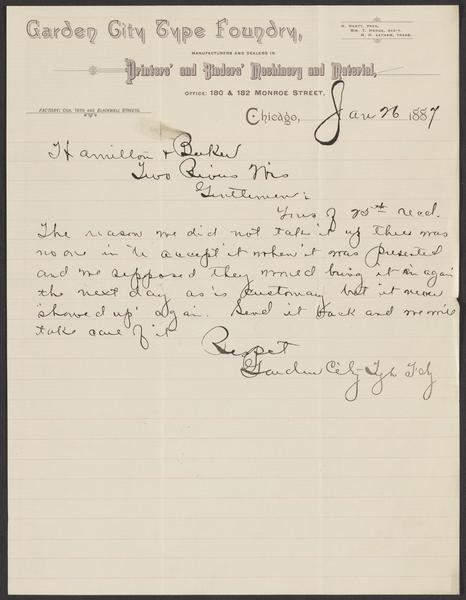 Garden City Type Foundry,
H. Hartt, Pres.
Wm. T. Hodge, Sec'y.
H. H. Latham, Treas.
MANUFACTURERS AND DEALERS IN
Printers' and Binders' Machinery and Material,
OFFICE: 180 & 182 MONROE STREET.
FACTORY: COR. 16TH AND BLACKWELL STREETS.
Chicago, Jan 26 1887
Hamilton & Baker
Two Rivers Wis
Gentlemen:
Yours of 25th recd.
The reason we did not take it up there was
no one in to accept it when it was presented
and we supposed they would bring it in again
the next day as is customary but it never
'showed up' again. Send it back and we will
take care of it
Respct
Garden City Typ Fdy